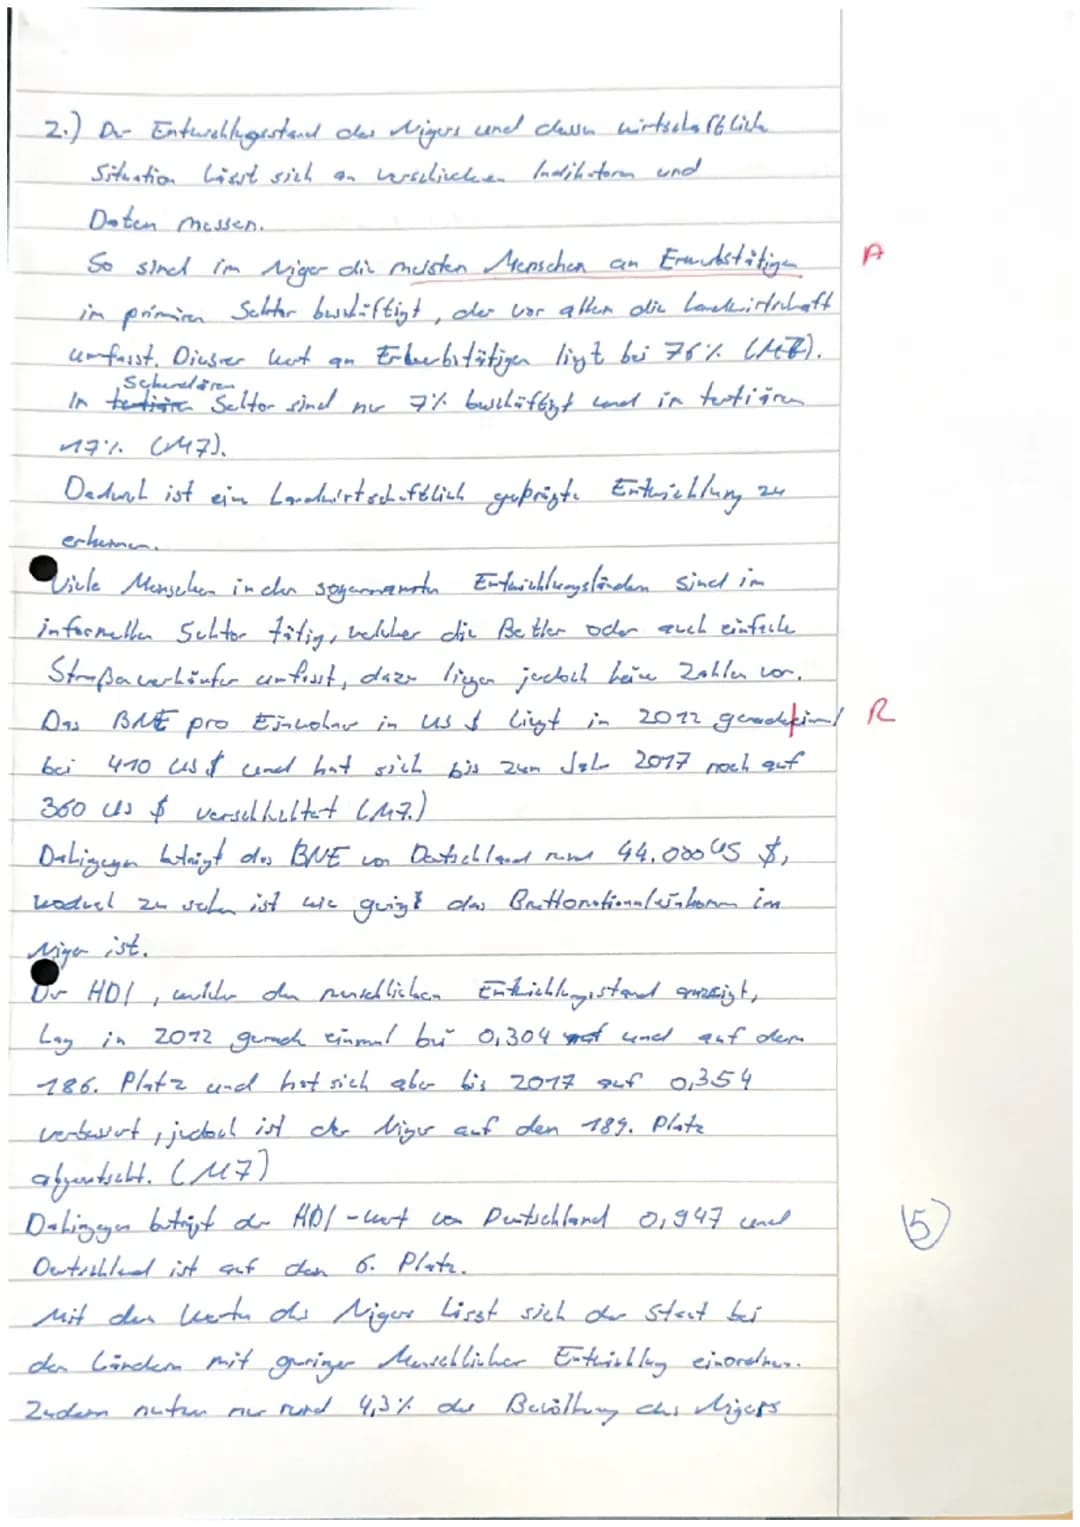 2.) Der Entwicklungsstand des Nigers und dessen wirtschaftliche
Situation lässt sich an verschiedenen Indikatoren und
Daten messen.
So sind im Niger die meisten Menschen an Erwerbstätigen A
im primären Sektor beschäftigt, der vor allem die Landwirtschaft
umfasst. Dieser Wert an Erwerbstätigen liegt bei 76% (M7).
Sekundären
Im tertiären Sektor sind nur 7% beschäftigt und im tertiären
17% (M7).
Dadurch ist ein Landwirtschaftlich geprägte Entwicklung zu
erkennen.
Viele Menschen in den sogenannten Entwicklungsländern sind im
informellen Sektor tätig, welcher die Bettler oder auch einfache
Straßenverkäufer umfasst, dazu liegen jedoch keine Zahlen vor.
Das BNE pro Einwohner in US $ liegt in 2012 geradeeinmal R
bei 410 US $ und hat sich bis zum Jahr 2017 noch auf
360 US $ verschlechtert (M7.)
Dahingegen beträgt das BNE von Deutschland rund 44.000 US $,
wodurch zu sehen ist wie gering das Bruttonationaleinkommen im
Niger ist.
Der HDI, welcher den menschlichen Entwicklungsstand anzeigt,
Lag in 2012 gerade einmal bei 0,304 und auf dem
186. Platz und hat sich aber bis 2017 auf 0,354
verbessert, jedoch ist der Niger auf den 189. Platz
abgerutscht. (M7)
Dahingegen beträgt der HDI-Wert von Deutschland 0,947 und
Deutschland ist auf den 6. Platz.
5
Mit den Werten des Nigers lässt sich der Staat bei
den Ländern mit geringer Menschlicher Entwicklung einordnen.
Zudem nutzen nur rund 4,3% der Bevölkerung des Nigers